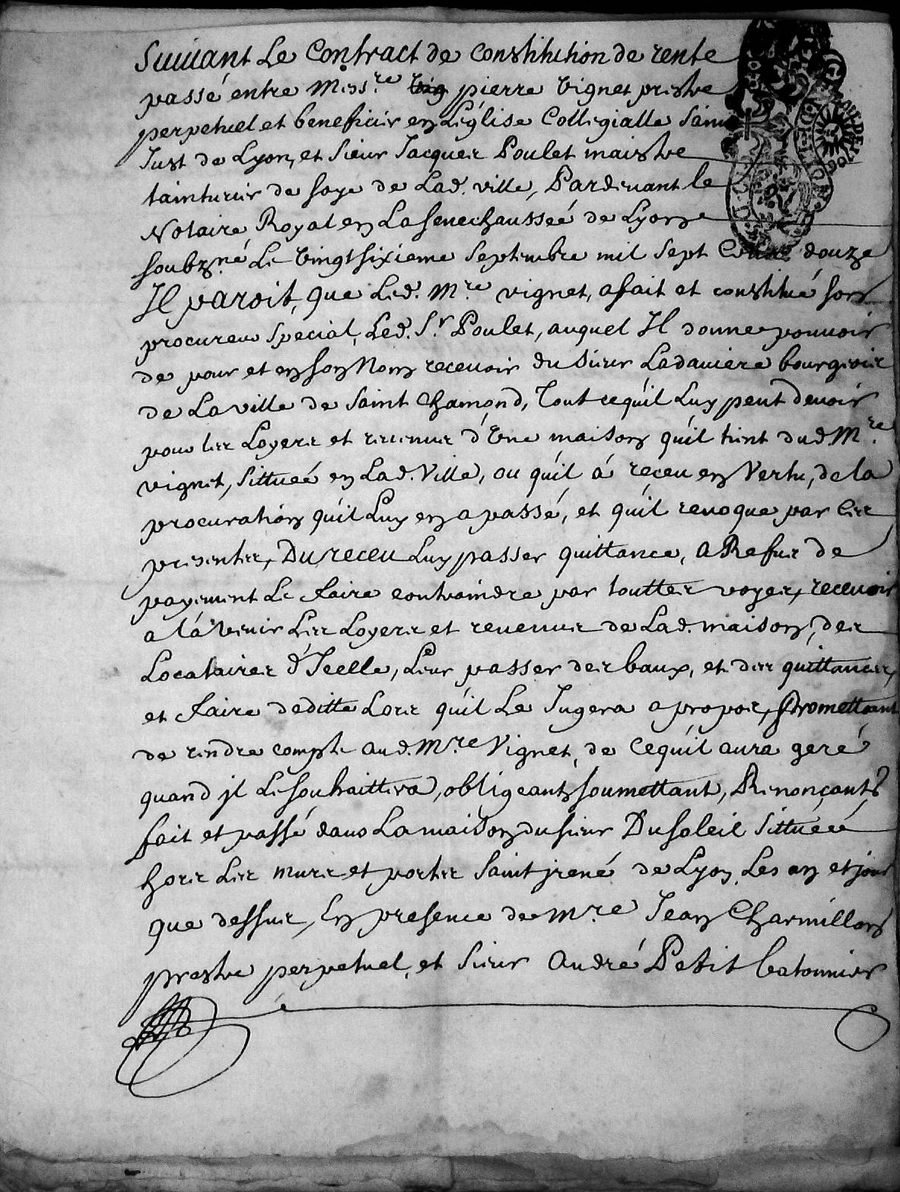 Suivant Le Contract de constitution de rente
passé entre Mess.re pierre Vignet prestre
perpetuel et beneficier en L'église Collegialle Saint
Just de Lyon, et Sieur Jacques Poulet maistre
tainturier de soye de Lad. ville, Pardevant le
Notaire Royal en La Senechausseé de Lyon
soubz.né Le Vingt sixieme Septembre mil sept Cent douze
Il paroit, que Led. M.re vignet, a fait et constitué son
procureur Special, Led. S.r Poulet, auquel Il donne pouvoir
de pour et en son Nom recevoir du Sieur Ladaviere bourgeois
de La ville de Saint Chamond, Tout cequil Luy peut devoir
pour les Loyers et revenus d'Une maison qu'il tient dud. M.re
vignet, Sittueé en Lad. Ville, ou qu'il à receu en Vertu, de la
procuration qu'il Luy en a passé, et qu'il revoque par ces
presentes, Du receu Luy passer quittance, a Refus de
payement Le Faire contraindre par touttes voyes, recevoir
a L'avenir Les Loyers et revenus de Lad. maison, des
Locataires d'Icelle, Leur passer des baux, et des quittances,
et Faire deditte Lors qu'il Le Jugera a propos, Promettant
de rendre compte aud. M.re Vignet, de cequil aura geré
quand il Le souhaittera, obligeant, soumettant, Renonçant
fait et passé dans La maison du sieur Dusoleil Sittueé
hors Les murs et portes Saint jrené de Lyon, Les an et jour
que dessus, En presence de M.re Jean Charmillon
prestre perpetuel, et Sieur André Petit batonnier